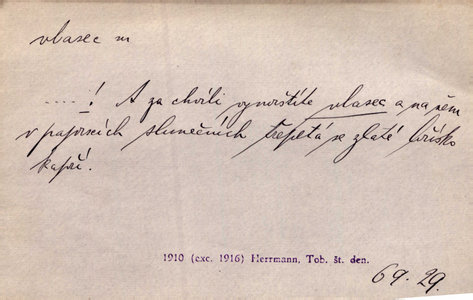 vlasec m
....! A za chvíli vymrštíte vlasec a na něm
v paprscích slunečních třepetá se zlaté bříško
kapří.
1910 (exc. 1916) Herrmann, Tob. št. den.
69. 29.